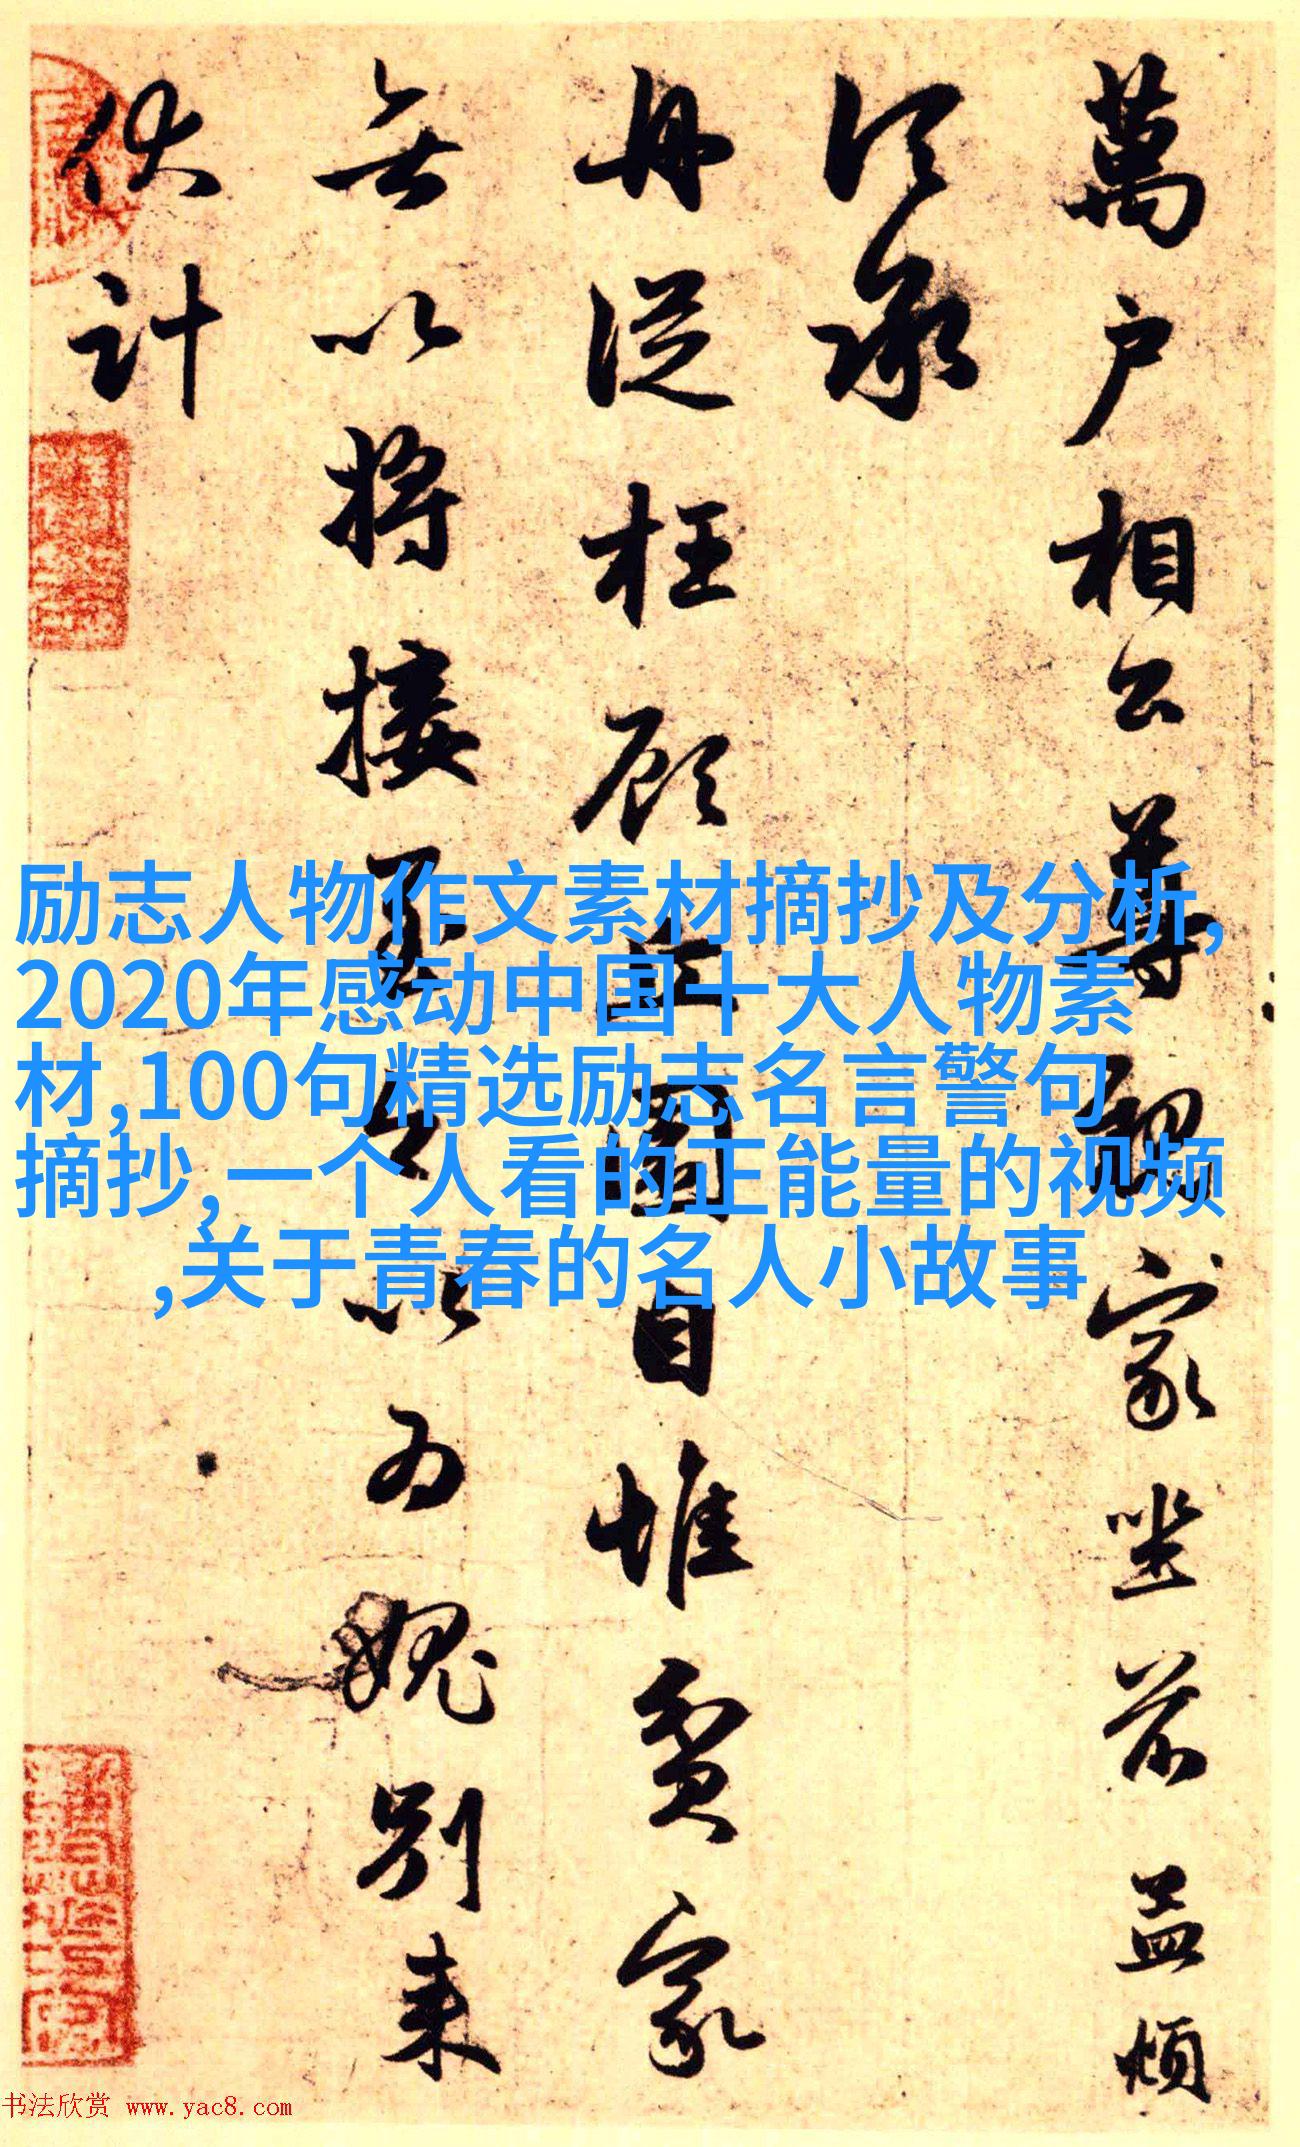 萬户相公尊親家坐前益煩
須承
再從枉顧
圖自惟貧家
無以將接
以为愧别来
伏計
励志人物作文素材摘抄及分析,
2020年感动中国十大人物素
材,100句精选励志名言警句
摘抄,一个人看的正能量的视频
,关于青春的名人小故事
书法欣赏 www.yac8.com